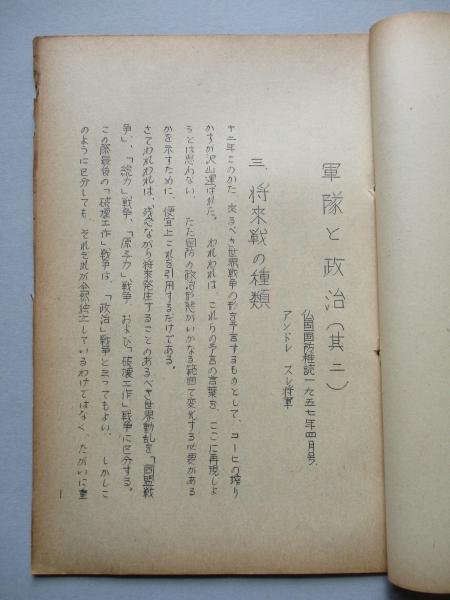 軍隊と政治（其二）
仏国国防雑誌一九五七年四月号
アンドレ スレ将軍
三、将来戦の種類
十二年このかた、来るべき世界戦争の形を予言するものとして、コーヒの搾り
かすが沢山運ばれた。われわれは、これらの予言の言葉を、ここに再現しよ
うとは思わない。ただ国防の政治形態がいかなる範囲で変化する必要がある
かを示すために、便宜上これを引用するだけである。
さてわれわれは、残念ながら将来発生することのあるべき世界動乱を「同盟戦
争」、「総力」戦争、「原子力」戦争、および「破壊工作」戦争に区分する。
この際最後の「破壊工作」戦争は、「政治」戦争と云ってもよい。しかしこ
のように区分しても、それぞれが全然独立しているわけではなく、たがいに重
1